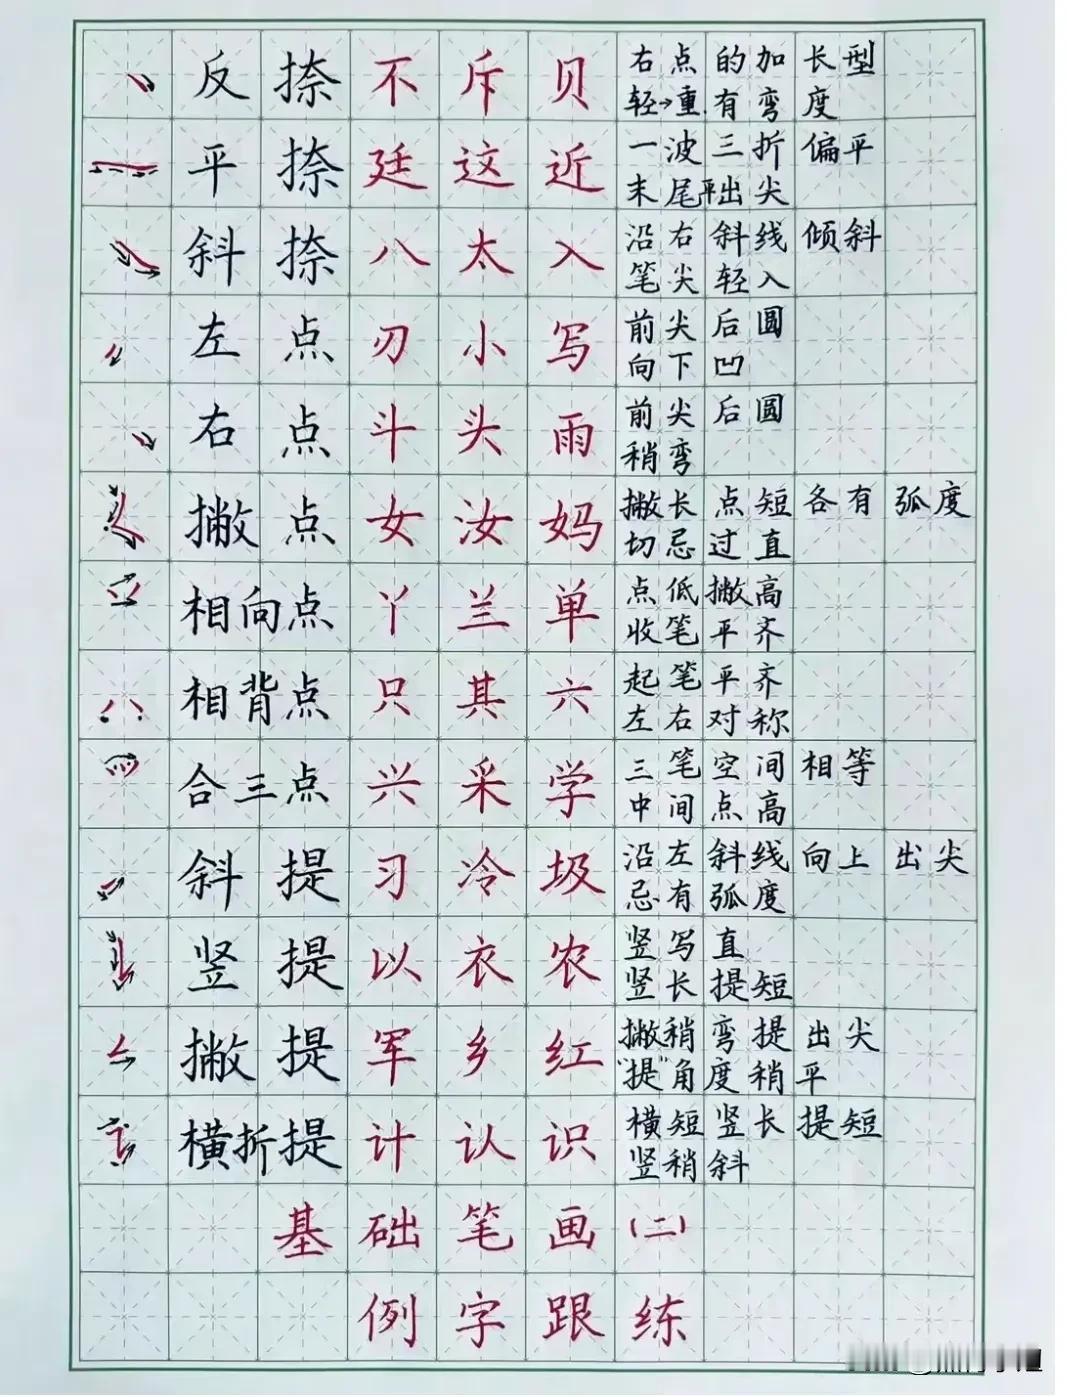 反捺 不 斥 贝 右点的加长型
轻→重.有弯度
平捺 廷 这 近 一波三折 偏平
末尾平出尖
斜捺 八 太 入 沿右斜线 倾斜
笔尖轻入
左点 刃 小 写 前尖后圆
向下凹
右点 斗 头 雨 前尖后圆
稍弯
撇点 女 汝 妈 撇长点短 各有弧度
切忌过直
相向点 丫 兰 单 点低撇高
收笔平齐
相背点 只 其 六 起笔平齐
左右对称
合三点 兴 采 学 三笔空间相等
中间点高
斜提 习 冷 圾 沿左斜线向上出尖
忌有弧度
竖提 以 衣 农 竖写直
竖长提短
撇提 军 乡 红 撇稍弯提出尖
"提"角度稍平
横折提 计 认 识 横短竖长提短
竖稍斜
基础笔画(二)
例字跟练